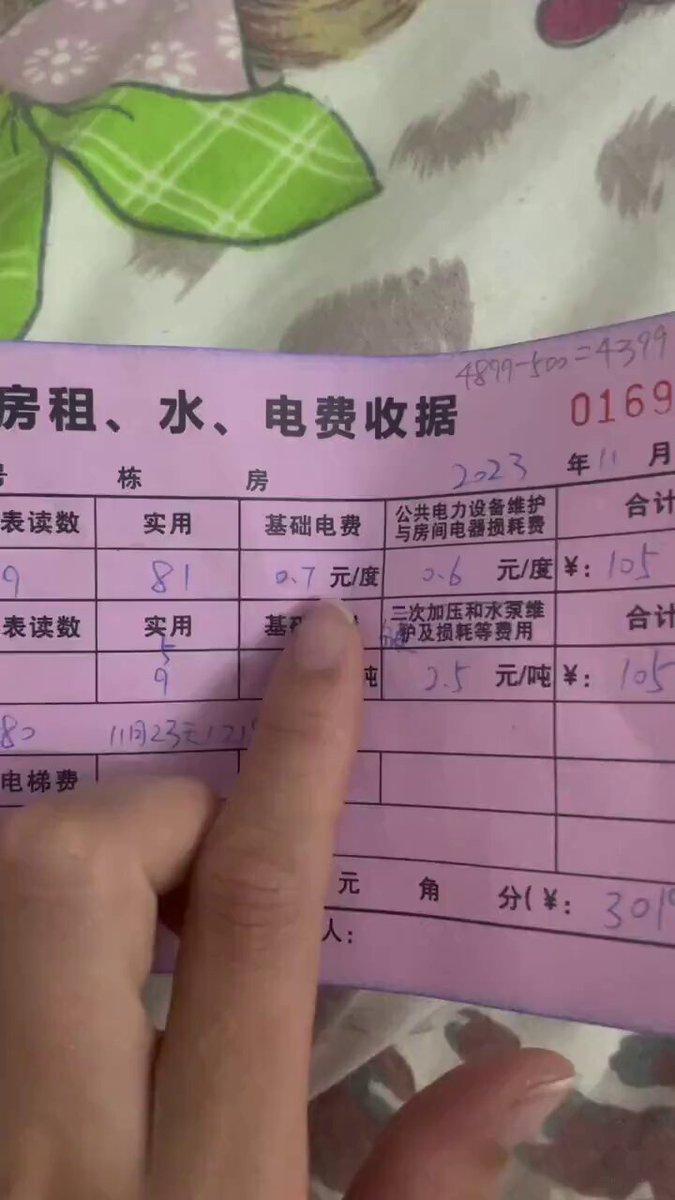 4899-500=4399
房租、水、电费收据 0169
栋 房 2023 年 11 月
表读数 实用 基础电费 公共电力设备维护与房间电器损耗费 合计
9 81 0.7 元/度 0.6 元/度 ¥: 105
表读数 实用 二次加压和水泵维护及损耗等费用 合计
5
9 吨 2.5 元/吨 ¥: 105
80 11月23天
电梯费
元 角 分(¥: 301
人: